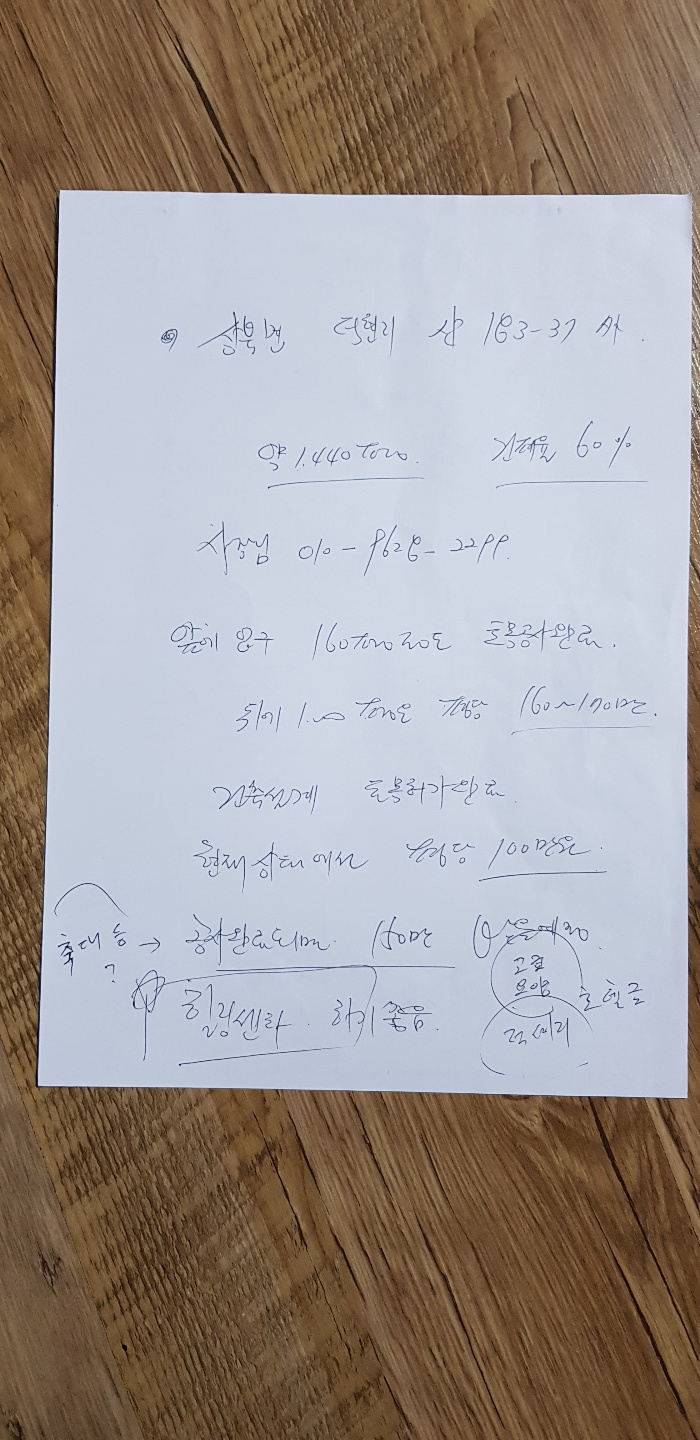 상북면 덕현리 산 183-37 外.
약 1.440 건폐율 60%
사장님 010-9628-2299.
앞에 입구 160 정도 토목공사완료.
뒤에 평당 160~170만.
건축설계 토목허가완료
현재 상태에서 평당 100만원.
→ 공사완료되면 150만
힐링센타. 하기 좋음.
고급
요양
호텔급
럭셔리
?